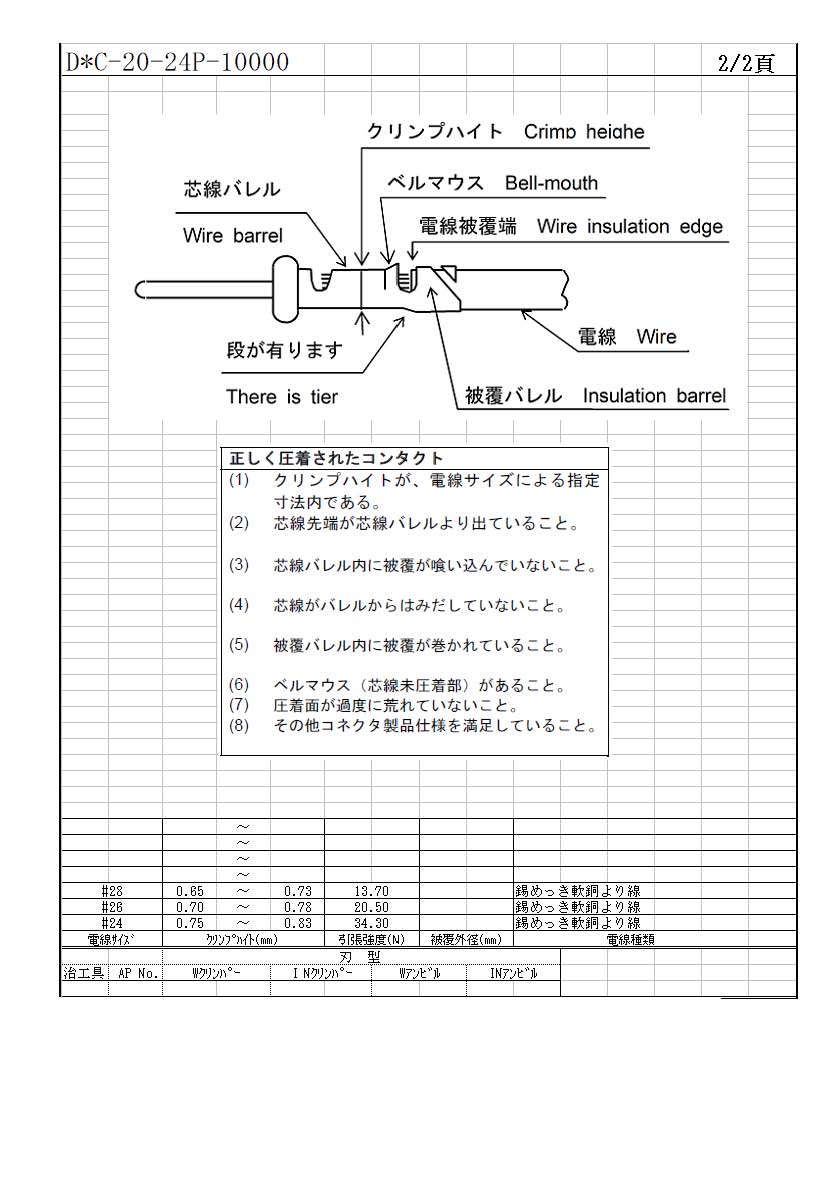 D*C-20-24P-10000 2/2頁
クリンプハイト Crimp heighe
ベルマウス Bell-mouth
芯線バレル
電線被覆端 Wire insulation edge
Wire barrel
電線 Wire
段が有ります
There is tier
被覆バレル Insulation barrel
正しく圧着されたコンタクト
(1) クリンプハイトが、電線サイズによる指定
寸法内である。
(2) 芯線先端が芯線バレルより出ていること。
(3) 芯線バレル内に被覆が喰い込んでいないこと。
(4) 芯線がバレルからはみだしていないこと。
(5) 被覆バレル内に被覆が巻かれていること。
(6) ベルマウス（芯線未圧着部）があること。
(7) 圧着面が過度に荒れていないこと。
(8) その他コネクタ製品仕様を満足していること。
～
～
～
～
#28 0.65 ～ 0.73 13.70 錫めっき軟銅より線
#26 0.70 ～ 0.78 20.50 錫めっき軟銅より線
#24 0.75 ～ 0.83 34.30 錫めっき軟銅より線
電線ｻｲｽﾞ ｸﾘﾝﾌﾟﾊｲﾄ(mm) 引張強度(N) 被覆外径(mm) 電線種類
刃 型
治工具 AP No. Wｸﾘﾝﾊﾟｰ I Nｸﾘﾝﾊﾟｰ Wｱﾝﾋﾞﾙ INｱﾝﾋﾞﾙ